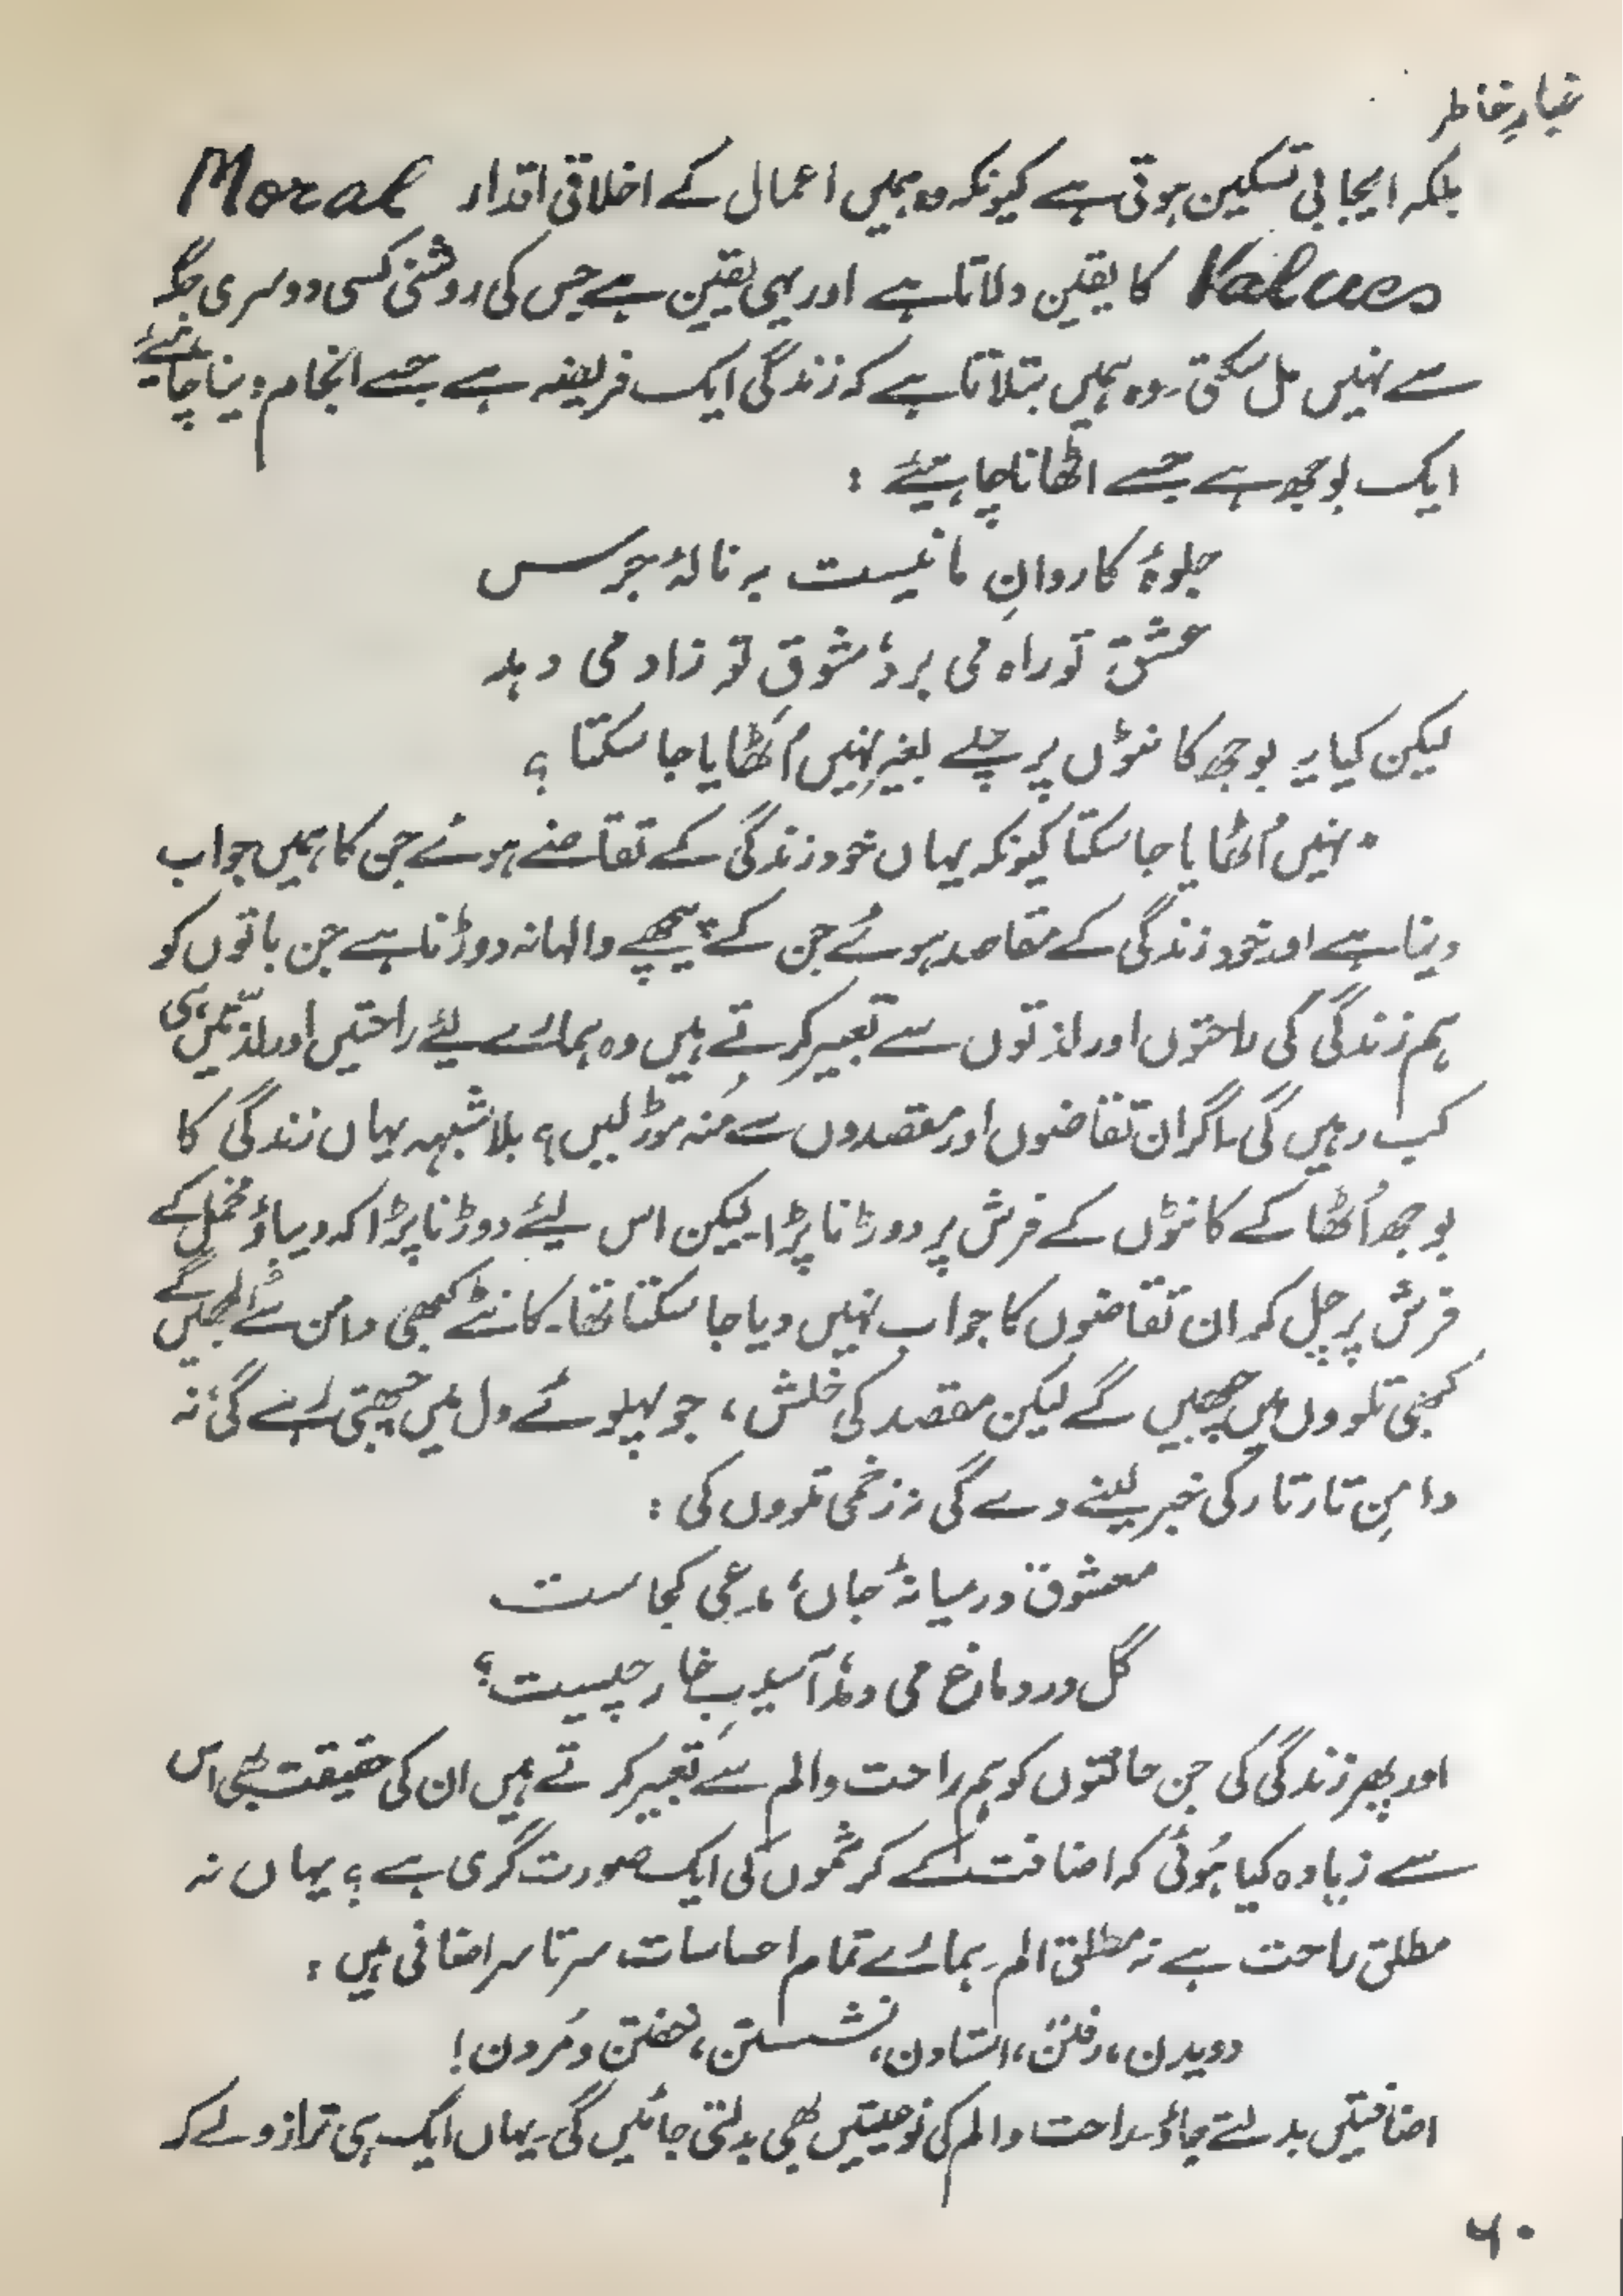 غبارِ خاطر
بلکہ ایجابی تسکین ہوتی ہے کیونکہ وہ ہمیں اعمال کے اخلاقی اقدار Moral
Values کا یقین دلاتا ہے اور یہی یقین ہے جس کی روشنی کسی دوسری جگہ
سے نہیں مل سکتی۔ وہ ہمیں بتلاتا ہے کہ زندگی ایک فریضہ ہے جسے انجام دینا چاہئے
ایک بوجھ ہے جسے اٹھانا چاہیئے :
جلوۂ کاروانِ ما نیست بہ نالۂ جرس
عشقِ تو راہ می برد، شوقِ تو زاد می دہد
لیکن کیا یہ بوجھ کانٹوں پر چلے بغیر نہیں اُٹھایا جا سکتا ؟
نہیں اُٹھایا جا سکتا کیونکہ یہاں خود زندگی کے تقاضے ہوئے جن کا ہمیں جواب
دینا ہے اور خود زندگی کے مقاصد ہوئے جن کے پیچھے والہانہ دوڑنا ہے جن باتوں کو
ہم زندگی کی راحتوں اور لذتوں سے تعبیر کرتے ہیں وہ ہمارے لئے راحتیں اور لذّتیں ہی
کب رہیں گی اگر ان تقاضوں اور مقصدوں سے مُنہ موڑ لیں؟ بلاشبہہ یہاں زندگی کا
بوجھ اُٹھا کے کانٹوں کے فرش پر دوڑنا پڑا لیکن اس لیئے دوڑنا پڑا کہ دیباؤ مخمل کے
فرش پر چل کر ان تقاضوں کا جواب نہیں دیا جا سکتا تھا۔ کانٹے کبھی دامن سے اُلجھیں گے
کبھی تلووں میں چبھیں گے لیکن مقصد کی خلش، جو پہلوئے دل میں چبھتی رہے گی، نہ
دامنِ تار تار کی خبر لینے دے گی نہ زخمی تلووں کی :
معشوق درمیانۂ جاں، مدعی کجاست
گل در دماغ می دمد، آسیبِ خار چیست؟
اور پھر زندگی کی جن حالتوں کو ہم راحت و الم سے تعبیر کرتے ہیں ان کی حقیقت بھی اس
سے زیادہ کیا ہُوئی کہ اضافت کے کرشموں کی ایک صورت گری ہے؟ یہاں نہ
مطلق راحت ہے نہ مطلق الم۔ ہمارے تمام احساسات سرتاسر اضافی ہیں :
دویدن، رفتن، استادن، نشستن، خفتن و مُردن!
اضافتیں بدلتے جاؤ راحت و الم کی نوعیتیں بھی بدلتی جائیں گی۔ یہاں ایک ہی ترازو لے کر
۶۰